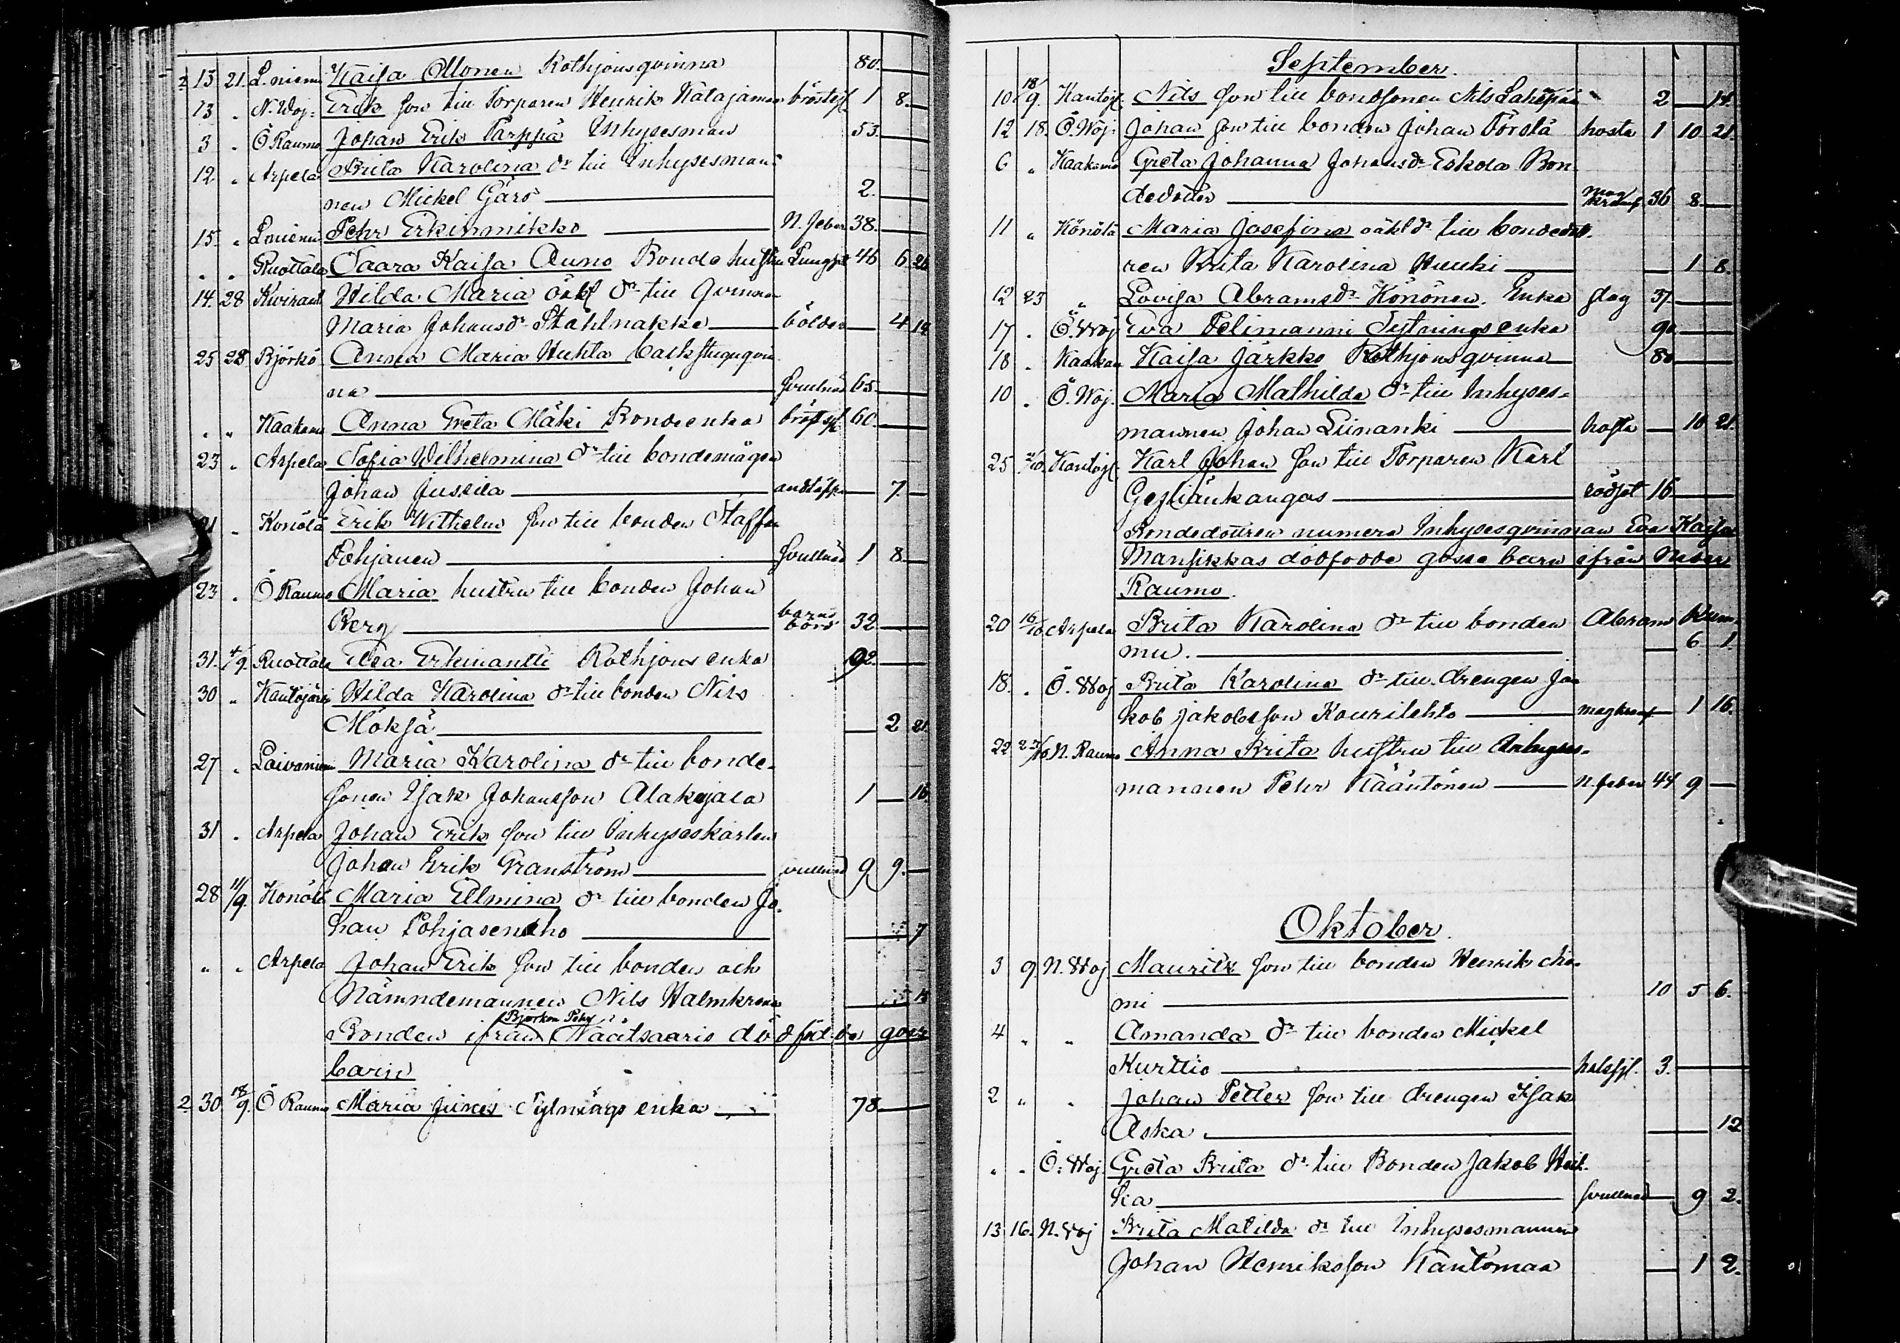 2 13 21. L.niemi Kaisa Ollonen Rothjonsqvinna 80.
13 " N. Woj: Erik son till Torparen Henrik Hatajamaa bröstsj 1 8
3 " Ö Raumo Johan Erik Pärppä Inhysesman 53
12 " Arpela Brita Karolina dr till Inhysesman-
nen Mickel Gärs 2.
15 " L.niemi Pehr Erkinmikko N. feber 38
" " Ruottala Saara Kaisa Auno Bonde hustru Lungst 46 6 26
14. 28 Kiviranta Hilda Maria oäkt dr till qvinnan
Maria Johansdr Ståhlnakke bölder 4 14
25 28 Björkö Anna Maria Huhta backstuguqvin
na svullnad 65
" " Kaakamo Anna Greta Mäki Bondeenka bröstsj 60.
23 " Arpela Sofia Wilhelmina dr till bondemågen
Johan Jussila andtäppa 7.
21 " Konölä Erik Wilhelm son till bonden Staffan
Pohjanen svullnad 1 8
23 " Ö Raumo Maria hustru till bonden Johan
Berg barnsbörd 32
31. 4/9. Ruottala Elsa Erkinantti Rothjons enka 92
30 " Kantojärvi Hilda Karolina dr till bonden Nils
Möksjä 2 21
27 " Laivaniemi Maria Karolina dr till bonde-
sonen Isak Johansson Alakojala 1 16
31 " Arpela Johan Erik son till Inhyseskarlen
Johan Erik Granström svullnad 9 9.
28 11/9. Konölä Maria Ellmina dr till bonden Jo-
han Pohjasenaho 7
" " Arpela Johan Erik son till bonden och
Nämndemannen Nils Halmkrona 15
Björkön Pehr
Bonden ifrån Näätsaaris dödfödde gosse
barn
2 30 18/9. Ö Raumo Maria Junes Sytnings enka 78

September.
10 18/9. Kantojf. Nils son till bondsonen Nils Lahepää 2 14.
12 18. Ö. Woj. Johan son till bonden Johan Törstä hosta 1 10 21.
6 " Kaakamo Greta Johanna Johansdr Eskola Bon
dedoter mag kräf. 36 8
11 " Könölä Maria Josefina oäkt dr till bondedot.
ren Brita Karolina Hurki 1 8.
12 23 " Lovisa Abramsdr Könönen. Enka slag 57
17 " Ö. Woj Eva Pelimanni Sytnings enka 90
18 " Kaakam Kaisa Järkkö Rothjonsqvinna 80
10 " Ö. Woj. Maria Mathilda dr till Inhyses-
mannen Johan Liinanki hosta 10 21
25 2/10. Kantojf Karl Johan son till Torparen Karl
Gesliänkangas rödsot 16
Bondedottren numera Inhysesqvinnan Eva Kaisa
Mansikkas dödfödde gosse barn ifrån Neder
Raumo.
20 16/10 Arpela Brita Karolina dr till bonden Abram Kum-
mu. 6 1
18. " Ö. Woj Brita Karolina dr till drengen Ja
kob Jakobsson Kourilehto magkram 1 16.
22 23/10 N. Raumo Anna Brita hustru till Inhyses-
mannen Pehr Kääntönen n. feber 44 9

Oktober.
3 9 N. Woj Mauritz son till bonden Henrik Au-
ni 10 5 6.
4 " " Amanda dr till bonden Mickel
Kurttio halssj. 3.
2 " " Johan Petter son till drengen Isak
Aska 12
" " Ö. Woj. Greta Brita dr till Bonden Jakob Heik-
ka svullnad 9 2.
13 16. N. Woj Brita Matilda dr till Inhysesmannen
Johan Henriksson Kantomaa 1 2.